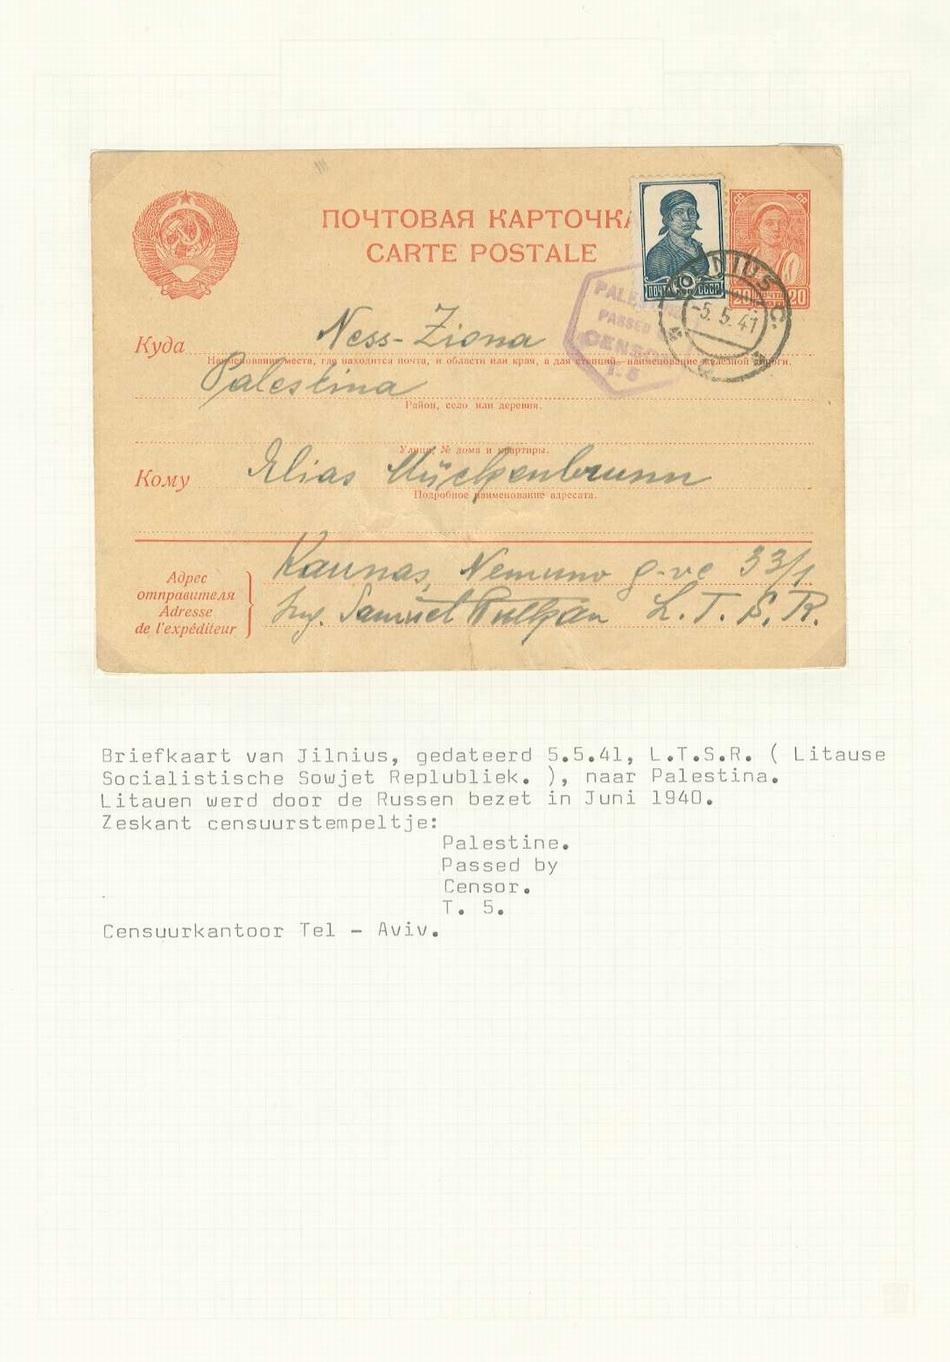 ПОЧТОВАЯ КАРТОЧКА
CARTE POSTALE
СС СР
ПОЧТА СССР
20 ПОЧТА 20
VILNIUS C.
-5.5.41
PALESTINE
PASSED
CENSOR
T. 5
Куда Ness-Ziona
Наименование места, где находится почта, и области или края, а для станций—наименование железной дороги.
Palestina
Район, село или деревня.
Улица, № дома и квартиры.
Кому Elias Mückenbrunn
Подробное наименование адресата.
Адрес
отправителя
Adresse
de l'expéditeur
Kaunas, Nemuno g-vė 33/1
Ing. Samuel L. T. S. R.
Briefkaart van Jilnius, gedateerd 5.5.41, L.T.S.R. ( Litause
Socialistische Sowjet Replubliek. ), naar Palestina.
Litauen werd door de Russen bezet in Juni 1940.
Zeskant censuurstempeltje:
Palestine.
Passed by
Censor.
T. 5.
Censuurkantoor Tel – Aviv.